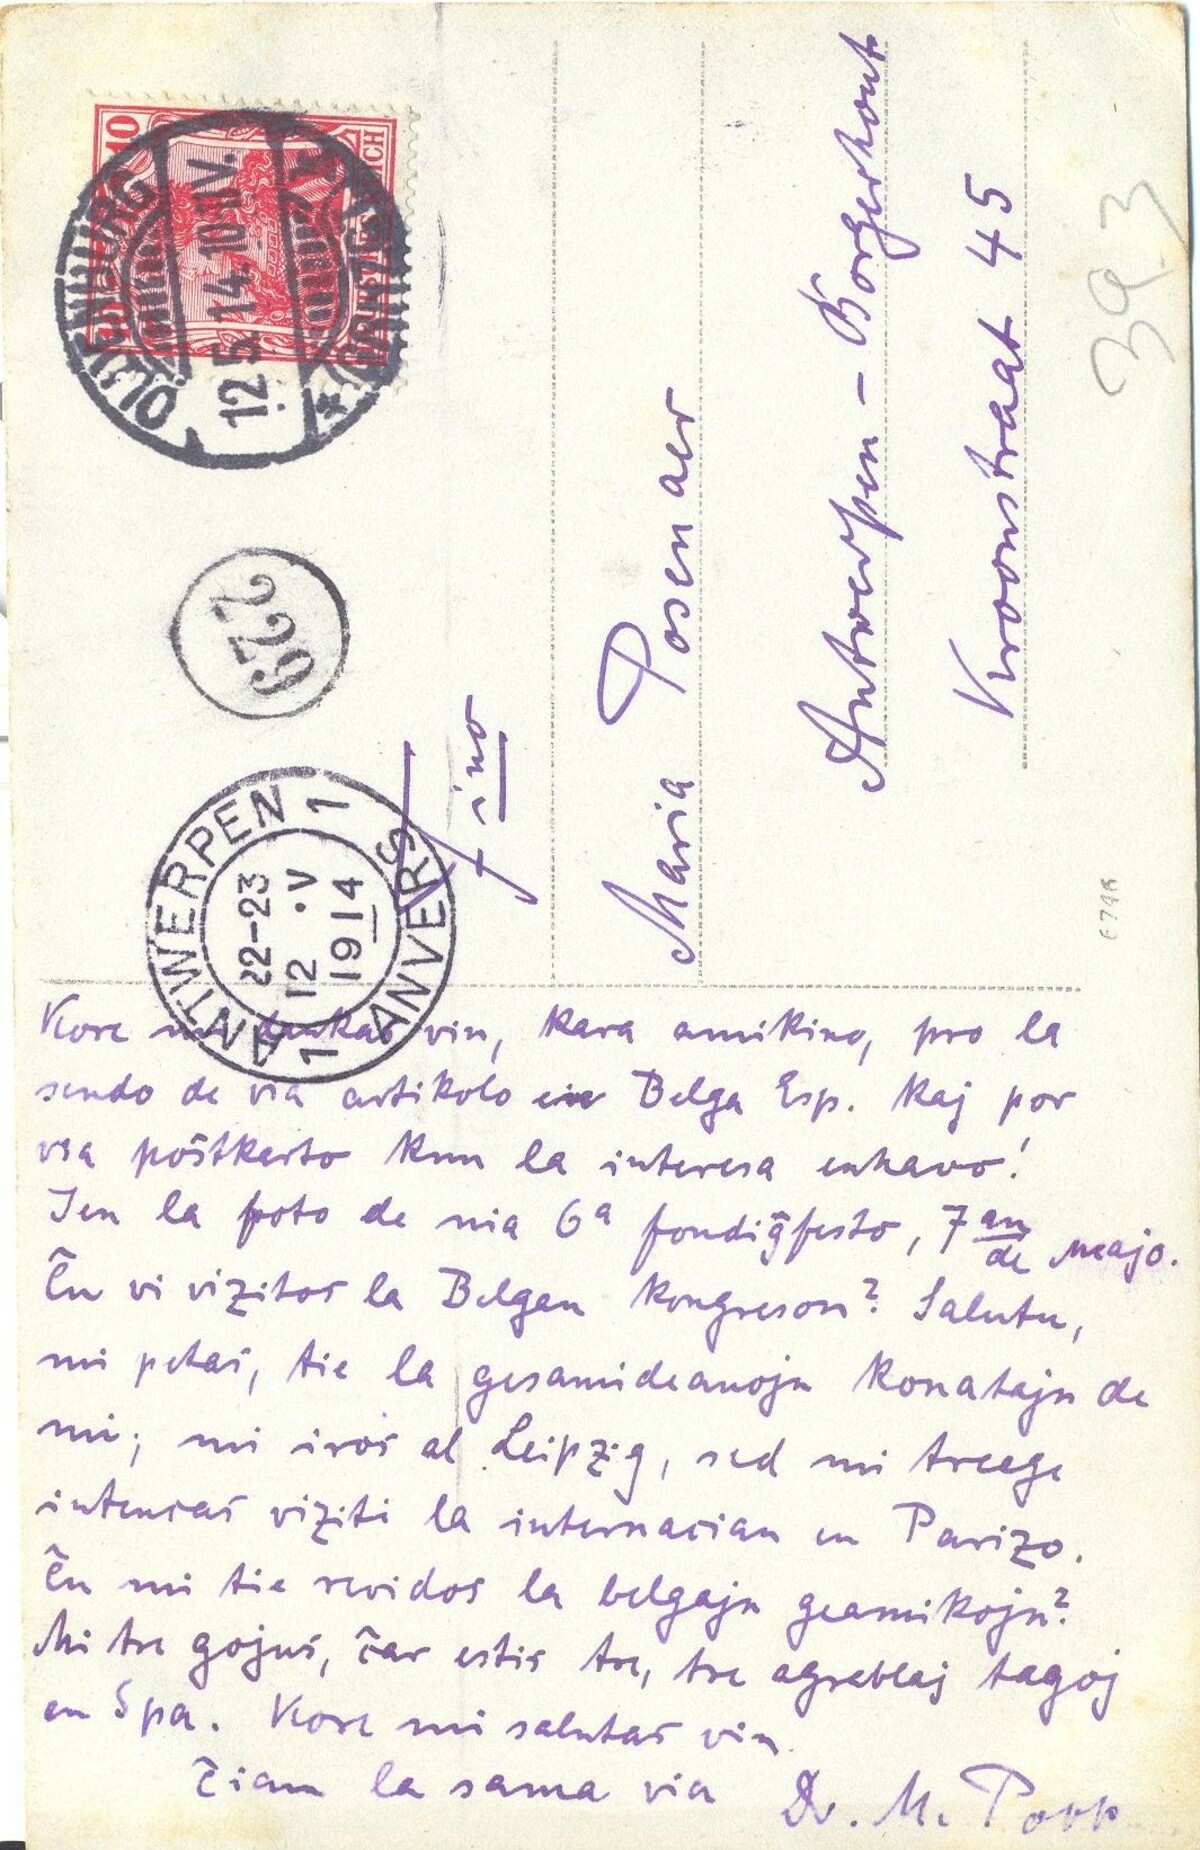 10
OLDENBURG
12.5.14.10-11V.
* (GRHZGT.) *
622
ANTWERPEN 1
22-23
12 .V
1914
1 ANVERS
F-ino
Maria Posenaer
Antwerpen - Borgerhout
Kroonstraat 45
393
Kore mi dankas vin, kara amikino, pro la
sendo de via artikolo en Belga Esp. kaj por
via poŝtkarto kun la interesa enhavo!
Jen la foto de nia 6a fondiĝfesto, 7an de majo.
Ĉu vi vizitos la Belgan Kongreson? Salutu,
mi petas, tie la gesamideanojn konatajn de
mi; mi iros al Leipzig, sed mi treege
intencas viziti la internacian en Parizo.
Ĉu mi tie revidos la belgajn geamikojn?
Mi tre ĝojus, ĉar estis tre, tre agrablaj tagoj
en Spa. Kore mi salutas vin
Ĉiam la sama via Dr. M. Popp